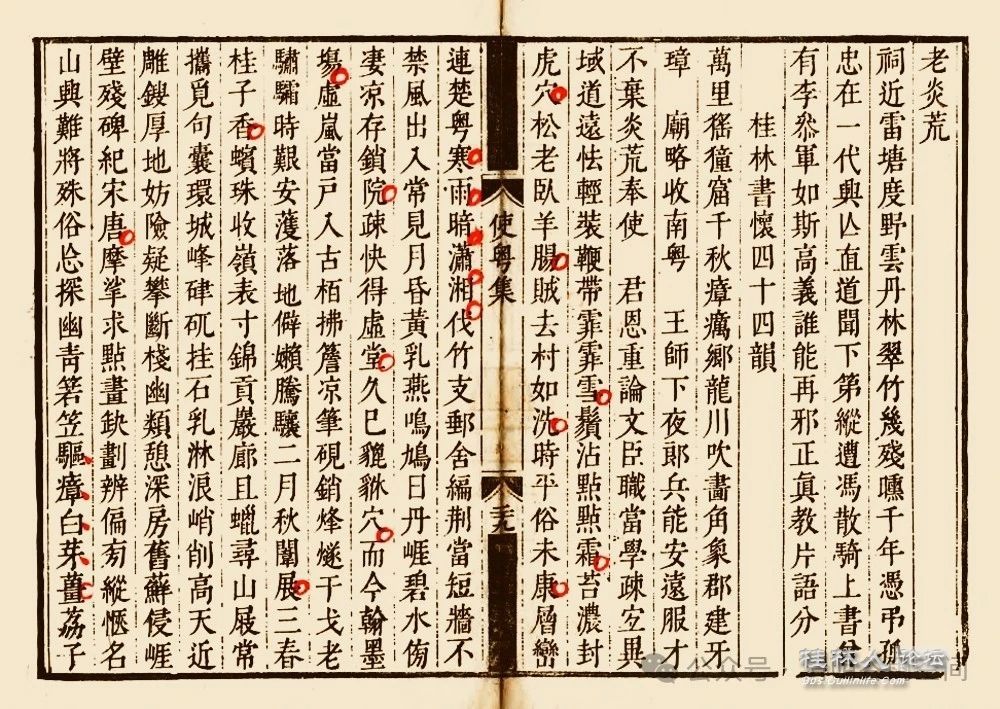 老炎荒
祠近雷塘度野雲丹林翠竹幾殘曛千年憑弔孤
忠在一代興亾直道聞下第縱遭馮散騎上書
有李叅軍如斯高義誰能再邪正眞教片語分
桂林書懷四十四韻
萬里猺獞窟千秋瘴癘鄉龍川吹畵角象郡建牙
璋 廟略收南粤 王師下夜郎兵能安遠服才
不棄炎荒奉使 君恩重論文臣職當學疎空異
域道遠怯輕裝鞭帶霏霏雪鬚沾點點霜苔濃封
虎穴松老臥羊腸賊去村如洗時平俗未康層巒
使粤集
三九
連楚粤寒雨暗瀟湘伐竹支郵舍編荆當短牆不
禁風出入常見月昏黃乳燕鳴鳩日丹崕碧水傍
凄凉存鎖院疎快得虛堂久巳貔貅穴而今翰墨
塲虛嵐當戶入古栢拂簷凉筆硯銷烽燧干戈老
驌驦時艱安濩落地僻嬾騰驤二月秋闈展三春
桂子香蠙珠收嶺表寸錦貢巖廊且蠟尋山屐常
攜覓句囊環城峰硉矹挂石乳淋浪峭削高天近
雕鎪厚地妨險疑攀斷棧幽類憩深房舊蘚侵崕
壁殘碑紀宋唐摩挲求點畫缺劃辨偏旁縱愜名
山興難將殊俗忘探幽靑箬笠驅瘴白茅薑荔子
桂林人论坛
Bbs.Guilinlife.Com
公众号